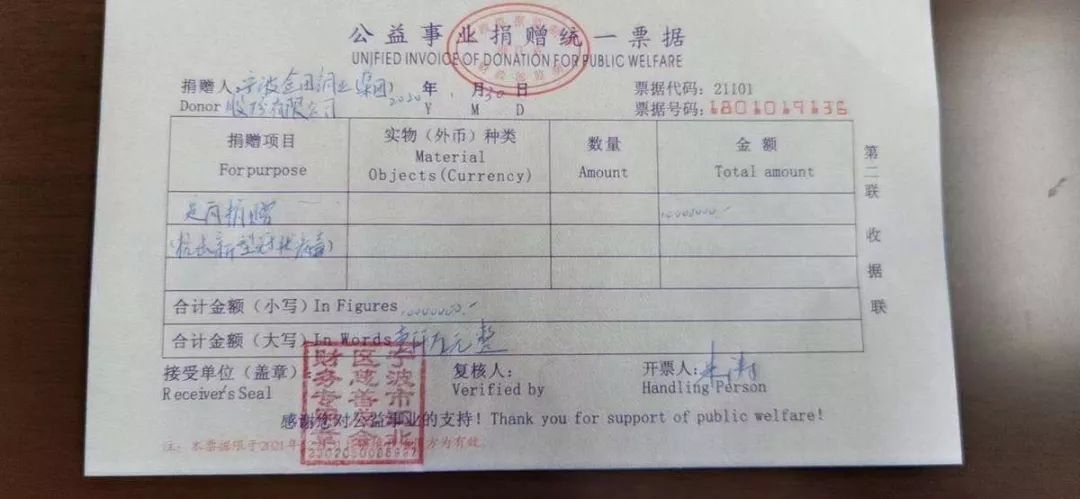 公益事业捐赠统一票据
UNIFIED INVOICE OF DONATION FOR PUBLIC WELFARE
捐赠人：宁波金田铜业（集团）
Donor 股份有限公司
2020 年 1 月 30 日
Y M D
票据代码：21101
票据号码：1801019136
捐赠项目
For purpose
实物（外币）种类
Material
Objects(Currency)
数量
Amount
金额
Total amount
定向捐赠
10000000.-
(抗击新型冠状病毒)
合计金额（小写）In Figures 10000000.-
合计金额（大写）In Words 壹仟万元整
接受单位（盖章）：
Receiver's Seal
复核人：
Verified by
开票人：
Handling Person
感谢您对公益事业的支持！Thank you for support of public welfare!
第二联 收据联
宁波市江北
区慈善总会
财务专用章